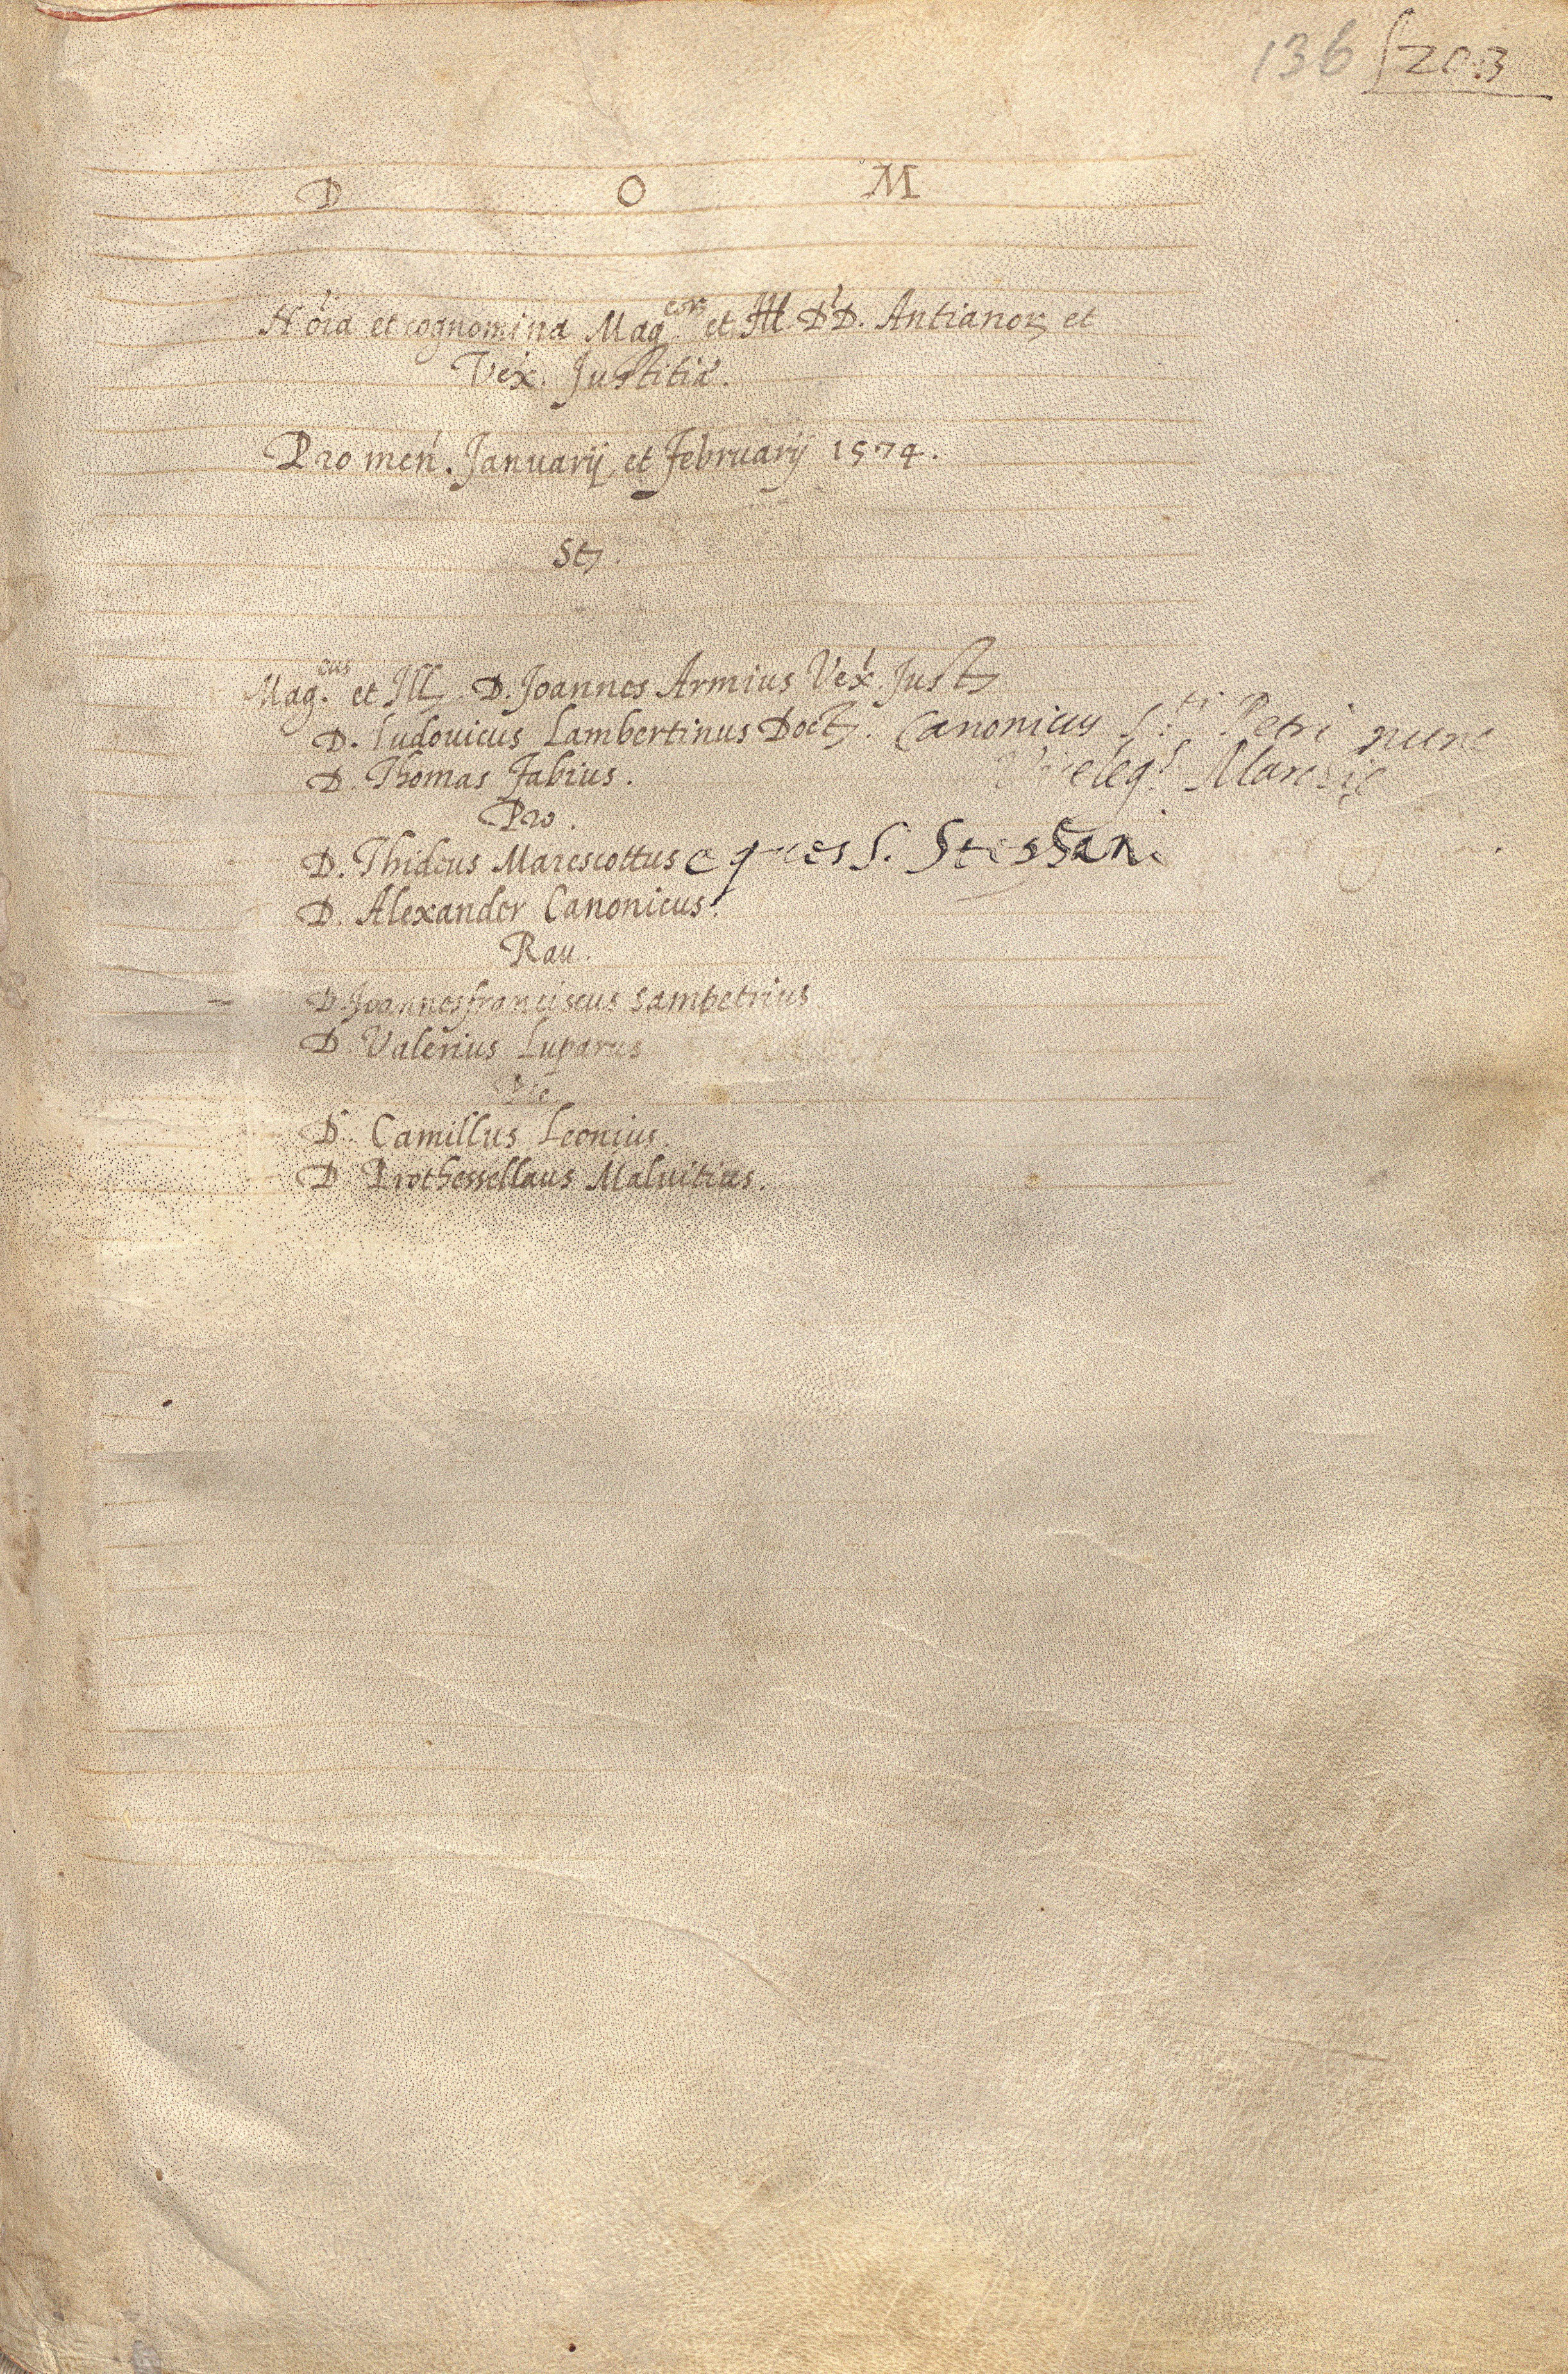 136 203
D O M
Nõia et cognomina Mag.cor et Ill. DD. Antianor et
Vex. Justitiæ.
Pro men. Januarij et Februarij 1574.
St.
Mag.cus et Ill. D. Joannes Armius Vex. Just
D. Ludovicus Lambertinus Doct. Canonicus S.ti Petri nunc
Vicelegs Marchie
D. Thomas Fabius.
Pro.
D. Thideus Marescottus eques S. Stephani
D. Alexander Canonicus.
Rau.
D. Joannesfranciscus Sampetrius
D. Valerius Luparus
D. Camillus Leonius.
D Prothessellaus Malvitius.